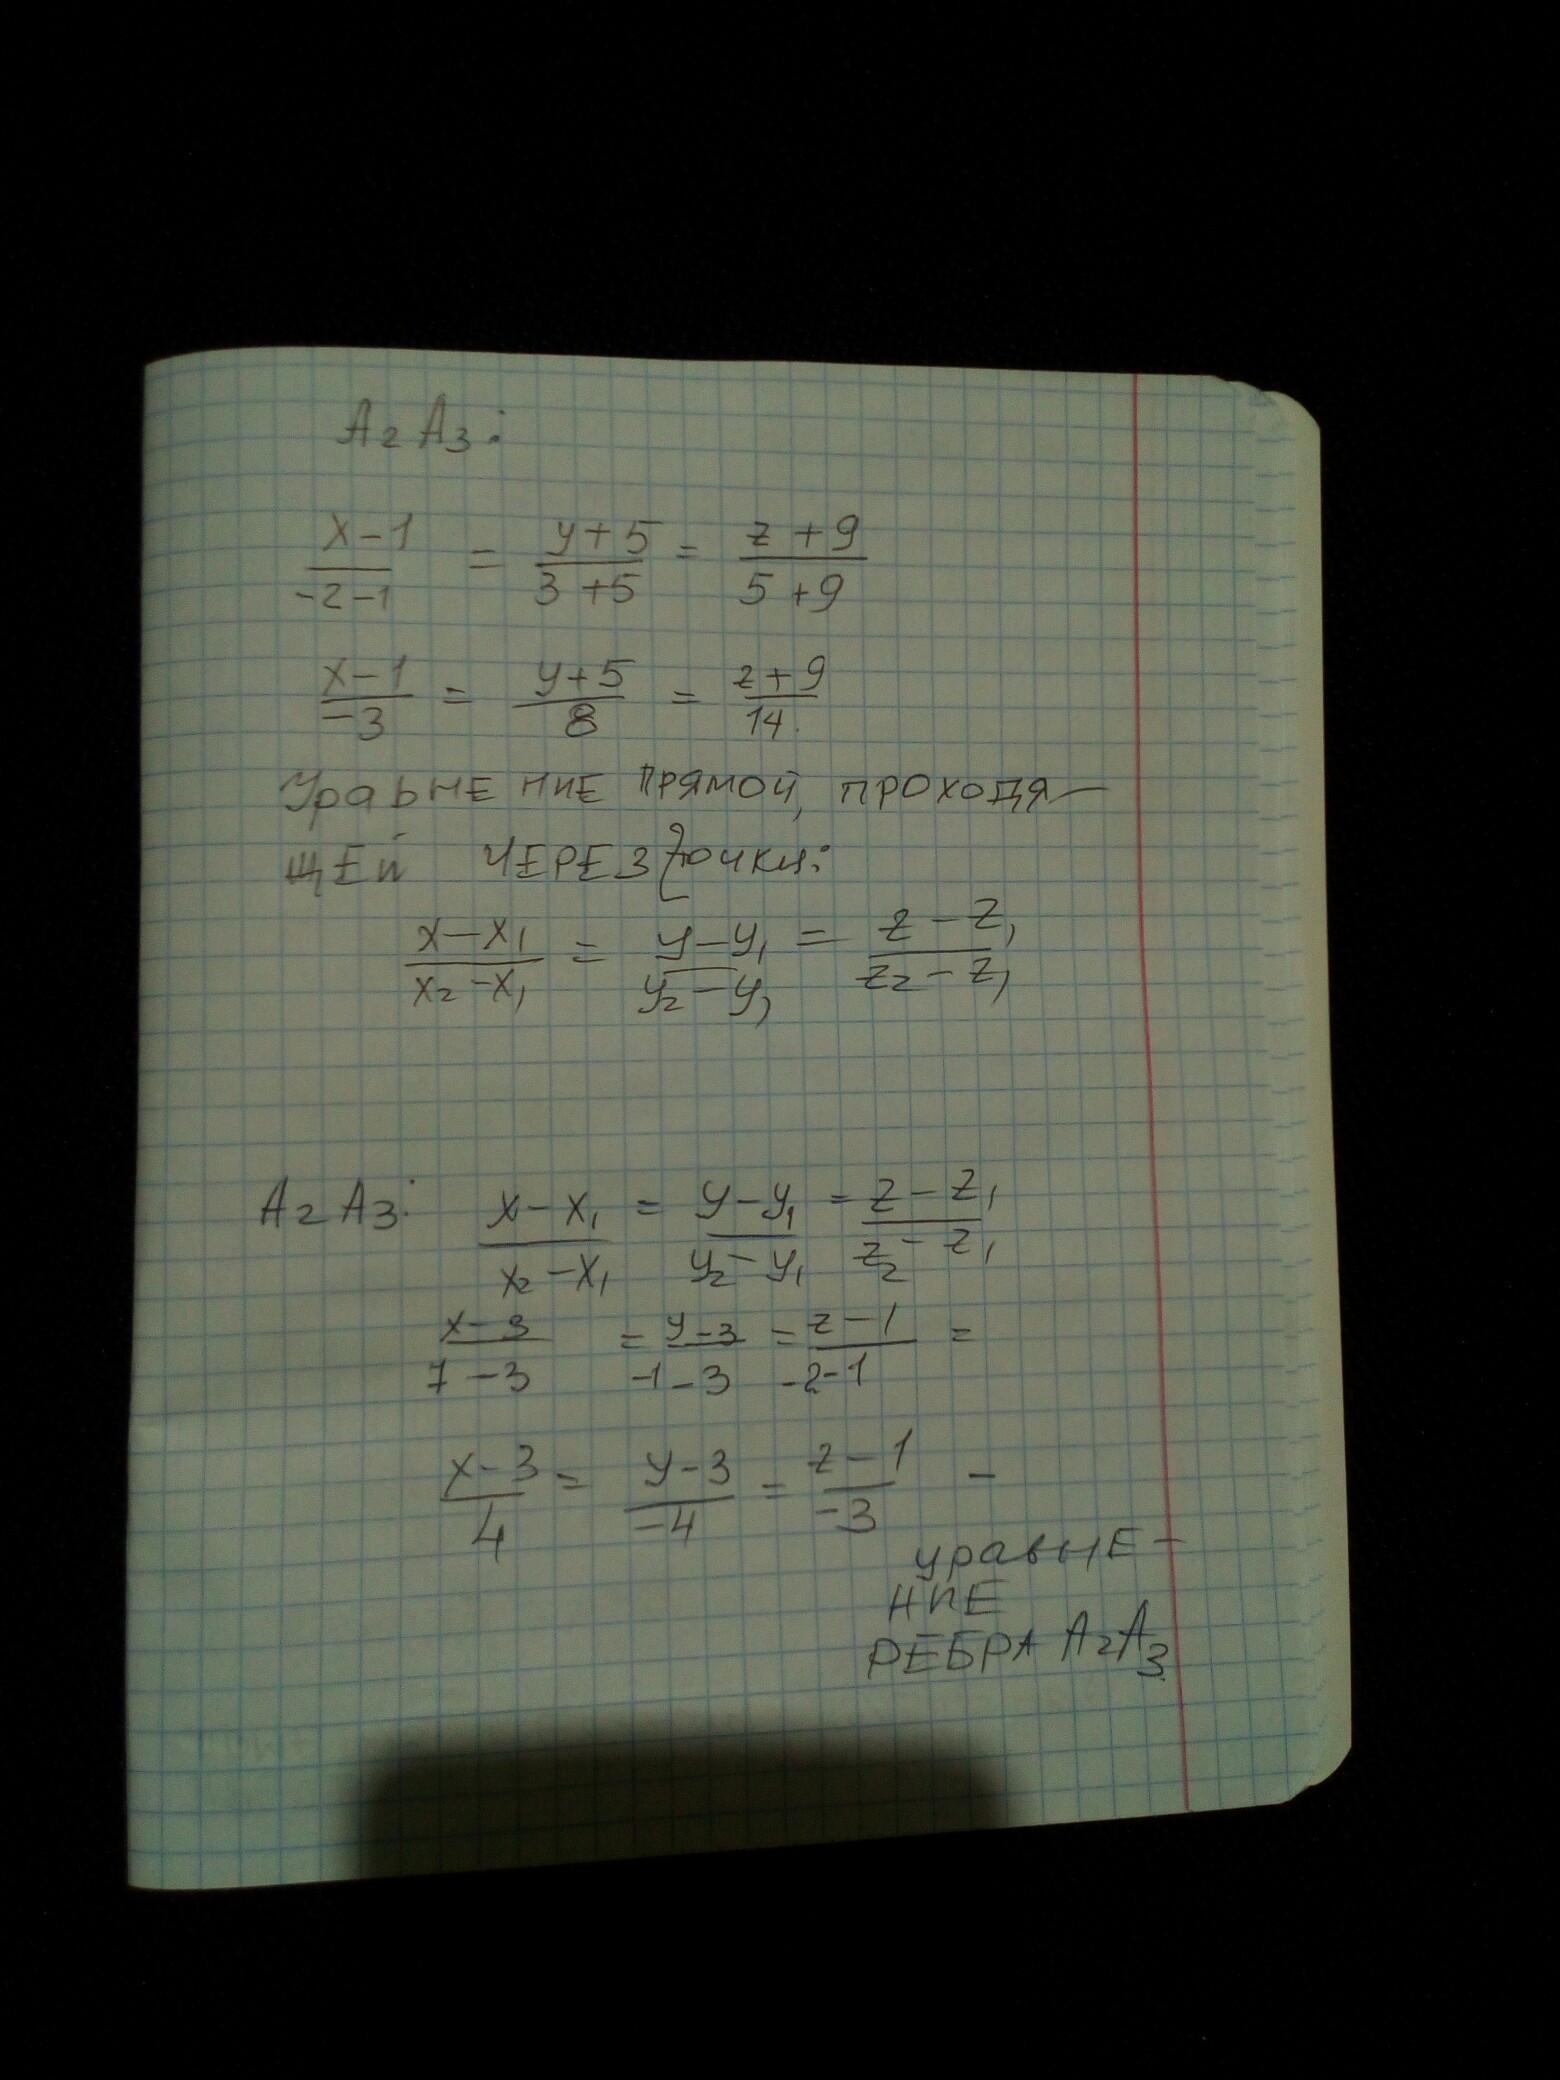 A₂A₃:
x-1/-2-1 = y+5/3+5 = z+9/5+9
x-1/-3 = y+5/8 = z+9/14.
Уравнение прямой, проходя-
щей через 2 точки:
x-x₁/x₂-x₁ = y-y₁/y₂-y₁ = z-z₁/z₂-z₁
A₂A₃: x-x₁/x₂-x₁ = y-y₁/y₂-y₁ = z-z₁/z₂-z₁
x-3/7-3 = y-3/-1-3 = z-1/-2-1 =
x-3/4 = y-3/-4 = z-1/-3 -
уравне-
ние
ребра A₂A₃